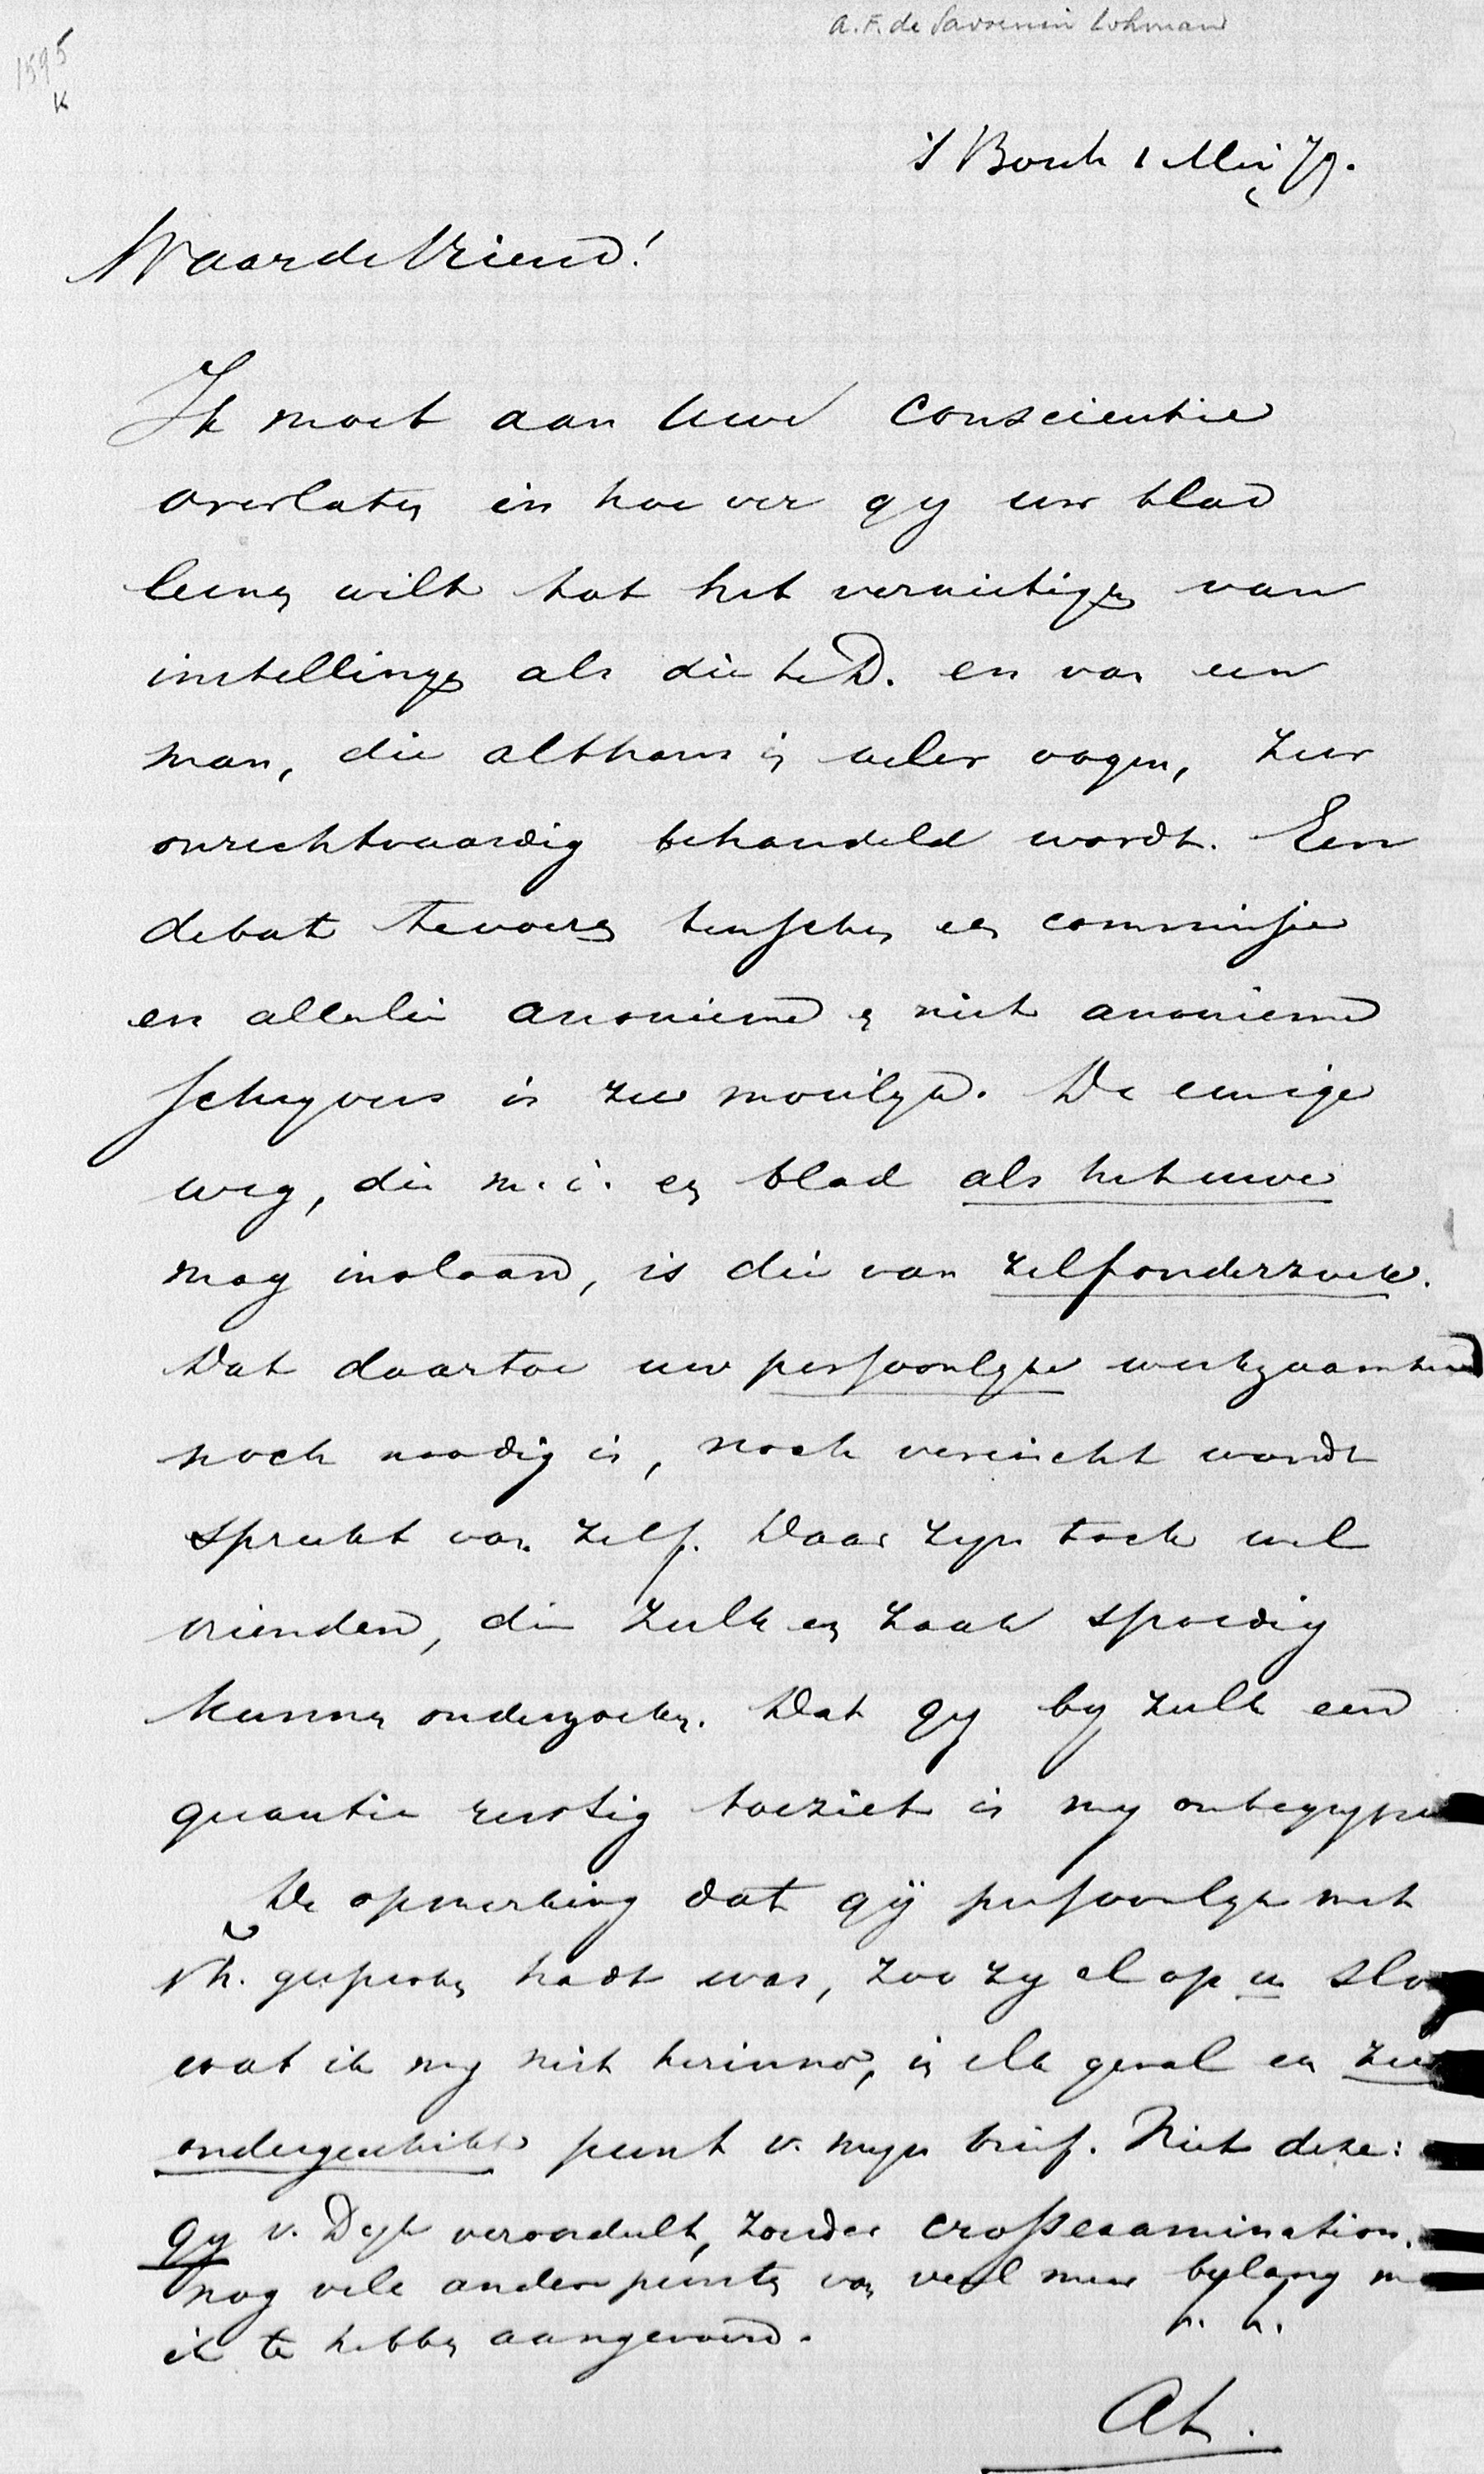 A.F. de Savornin Lohman
1595
K
's Bosch 1 Mei 79.
Waarde Vriend!
Ik moet aan Uwe conscientie
overlaten in hoever gy uw blad
leenen wilt tot het vernietigen van
instellingen als die te D. en van een
man, die althans in veler oogen, zeer
onrechtvaardig behandeld wordt. Een
debat te voeren tusschen een commissie
en allerlei anonieme en niet anonieme
schryvers is zeer moeilyk. De eenige
weg, die m.i. een blad als het uwe
mag inslaan, is die van zelfonderzoek.
Dat daartoe uw persoonlyke werkzaamheid
noch noodig is, noch vereischt wordt
spreekt van zelf. Daar zyn toch wel
vrienden, die zulk een zaak spoedig
kunnen onderzoeken. Dat gy by zulk een
quaestie rustig toeziet is my onbegrypel
De opmerking dat gÿ persoonlyk met
gesproken hadt was, zoo zy al op u slo
wat ik my niet herinner, in elk geval een zeer
ondergeschikt punt v. myn brief. Niet deze:
gy v. Dyk veroordeelt, zonder crossexamination.
nog vele andere punten van veel meer belang m
ik te hebben aangevoerd. h. h.
AL.